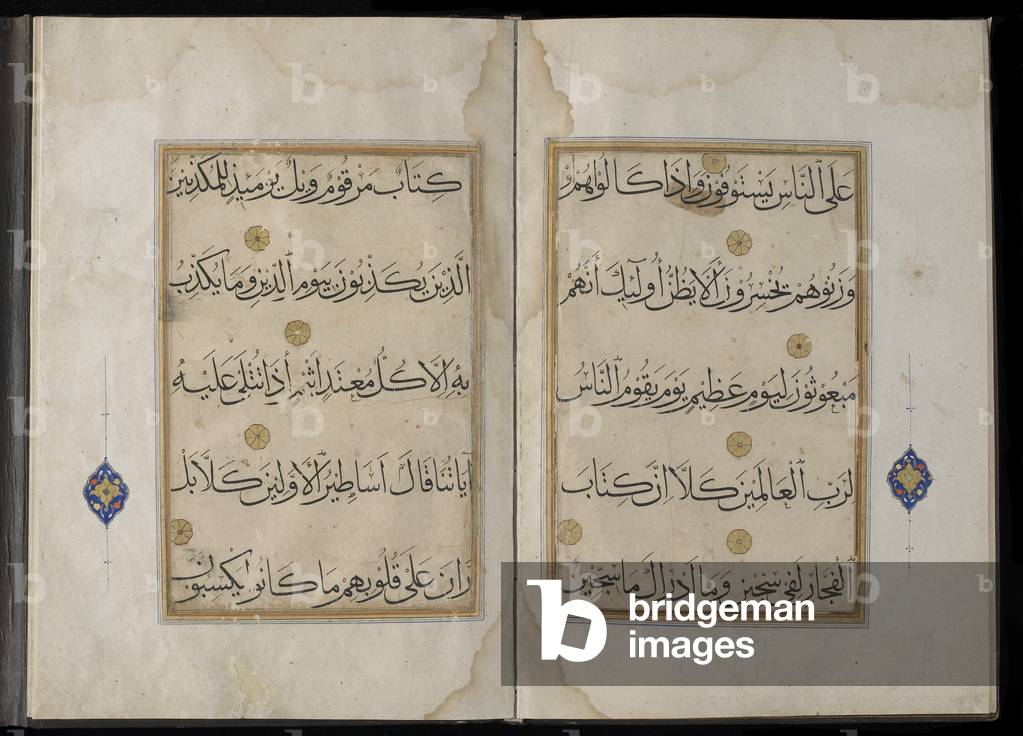 عَلَى ٱلنَّاسِ يَسْتَوْفُوْنَ وَاِذَا كَالُوْهُمْ اَوْ
وَزَنُوْهُمْ يُخْسِرُوْنَ أَلَا يَظُنُّ أُولَٰئِكَ أَنَّهُمْ
مَبْعُوْثُوْنَ لِيَوْمٍ عَظِيْمٍ يَوْمَ يَقُوْمُ النَّاسُ
لِرَبِّ ٱلْعَالَمِيْنَ كَلَّا اِنَّ كِتَابَ
ٱلْفُجَّارِ لَفِي سِجِّيْنٍ وَمَا أَدْرَاكَ مَا سِجِّيْنٌ
كِتَابٌ مَرْقُوْمٌ وَيْلٌ يَوْمَئِذٍ لِلْمُكَذِّبِيْنَ
الَّذِيْنَ يُكَذِّبُوْنَ بِيَوْمِ ٱلدِّيْنِ وَمَا يُكَذِّبُ
بِهِ اِلَّا كُلُّ مُعْتَدٍ اَثِيْمٍ إِذَا تُتْلَى عَلَيْهِ
آيَاتُنَا قَالَ اَسَاطِيْرُ الْأَوَّلِيْنَ كَلَّا بَلْ
رَانَ عَلَى قُلُوْبِهِمْ مَا كَانُوا يَكْسِبُوْنَ
b bridgeman
images